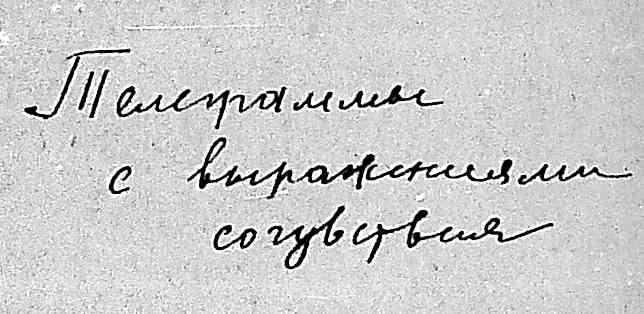 Телеграммы
с выражениями
сочувствия